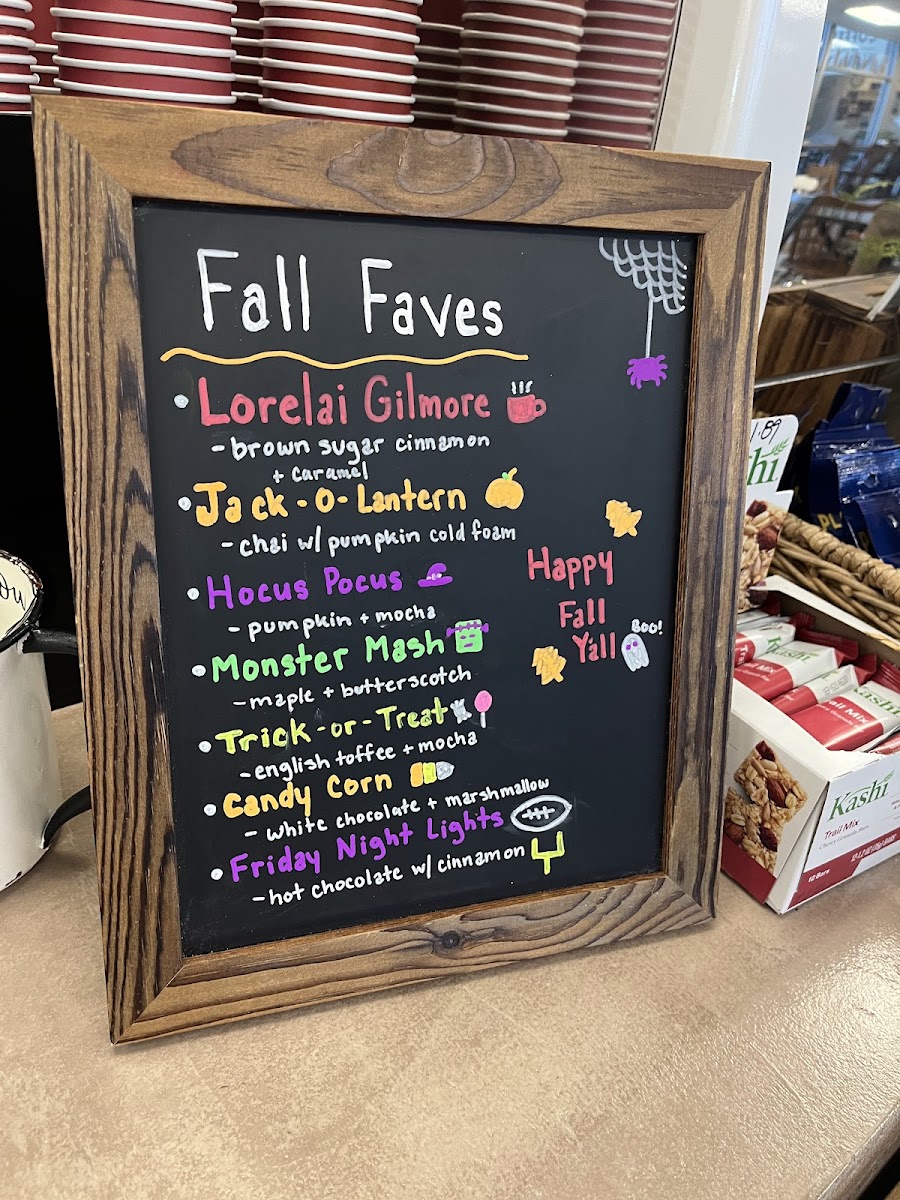 Fall Faves
• Lorelai Gilmore
- brown sugar cinnamon
+ caramel
• Jack-O-Lantern
- chai w/ pumpkin cold foam
• Hocus Pocus
- pumpkin + mocha
• Monster Mash
- maple + butterscotch
• Trick-or-Treat
- english toffee + mocha
• Candy Corn
- white chocolate + marshmallow
• Friday Night Lights
- hot chocolate w/ cinnamon
Happy
Fall
Y'all
Boo!
1.89
Kashi
Kashi
Kashi
Trail Mix
12 Bars